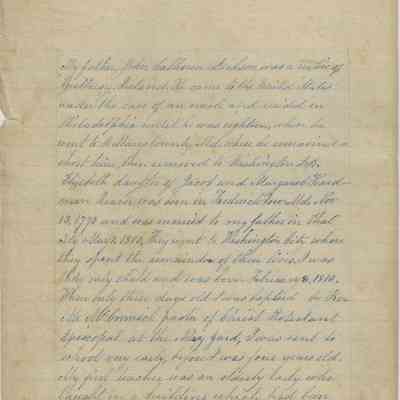 My father, John Calhoun was a native of
Ireland. He came to the United States
under the care of an uncle and resided in
Philadelphia until he was eighteen, when he
went to County, Md. where he remained a
short time, then removed to Washington
Elizabeth daughter of Jacob and Margaret
was born in Frederick Md. Nov
13, 1793 and was married to my father in that
city 1812. They went to Washington City where
they spent the remainder of their lives. I was
their child and was born February 8, 1814.
When only three days old I was baptised by Rev
Mr. McCormick pastor of Christ Protestant
Episcopal at the Navy yard, I was sent to
school very early, before I was four years old.
My first teacher was an elderly lady who
taught in a building which had been